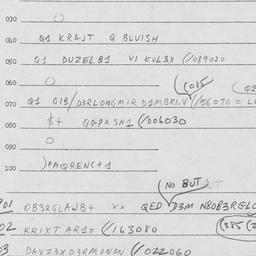 030 O
040 Q1 KRAJT Q BLUISH
050 Q1 DUZELB1 VI KOL3X (/089020
060 O (085
070 Q1 GIB/D3RLONGMIR D1MBRI.V (/56070 =
080 $+ QGPASN1 (/006030
090 O
100 )PAQRENC+1
NO BUT
01 OB3RGLAWB+ XX QED D3M N80B3RGLO
02 KRIXT AR1= (/163080 (385
03 DAVZ3XD3RMONIN (/022060